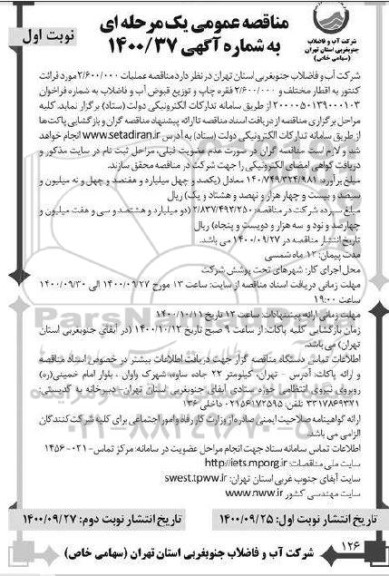 شرکت آب و فاضلاب
جنوبغربی استان تهران
(سهامی خاص)
مناقصه عمومی یک مرحله ای
به شماره آگهی ۱۴۰۰/۳۷
نوبت اول
شرکت آب و فاضلاب جنوبغربی استان تهران در نظر دارد مناقصه عملیات ۲/۶۰۰/۰۰۰ مورد قرائت
کنتور به اقطار مختلف و ۲/۶۰۰/۰۰۰ فقره چاپ و توزیع قبوض آب و فاضلاب به شماره فراخوان
۲۰۰۰۰۵۰۱۳۹۰۰۰۱۰۳ از طریق سامانه تدارکات الکترونیکی دولت (ستاد) برگزار نماید. کلیه
مراحل برگزاری مناقصه از دریافت اسناد مناقصه تا ارائه پیشنهاد مناقصه گران و بازگشایی پاکت ها
از طریق سامانه تدارکات الکترونیکی دولت (ستاد) به آدرس www.setadiran.ir انجام خواهد
شد و لازم است مناقصه گران در صورت عدم عضویت قبلی، مراحل ثبت نام در سایت مذکور و
دریافت گواهی امضای الکترونیکی را جهت شرکت در مناقصه محقق سازند.
مبلغ برآورد: ۱۴۰/۷۴۹/۳۲۴/۹۸۱ معادل (یکصد و چهل میلیارد و هفتصد و چهل و نه میلیون و
سیصد و بیست و چهار هزار و نهصد و هشتاد و یک) ریال
مبلغ سپرده شرکت در مناقصه: ۲/۸۳۷/۴۹۳/۲۵۰ (دو میلیارد و هشتصد و سی و هفت میلیون و
چهارصد و نود و سه هزار و دویست و پنجاه) ریال
تاریخ انتشار مناقصه در ۱۴۰۰/۰۹/۲۷ می باشد.
مدت پیمان: ۱۲ ماه شمسی
محل اجرای کار: شهرهای تحت پوشش شرکت
مهلت زمانی دریافت اسناد مناقصه از سایت: ساعت ۱۳ مورخ ۱۴۰۰/۰۹/۲۷ الی ۱۴۰۰/۰۹/۳۰
ساعت ۱۹:۰۰
مهلت زمانی ارائه پیشنهادات: ساعت ۱۳ تاریخ ۱۴۰۰/۱۰/۱۱
زمان بازگشایی کلیه پاکات: از ساعت ۹ صبح تاریخ ۱۴۰۰/۱۰/۱۲ (در آبفای جنوبغربی استان
تهران) می باشد.
اطلاعات تماس دستگاه مناقصه گزار جهت دریافت اطلاعات بیشتر در خصوص اسناد مناقصه
و ارائه پاکات: آدرس - تهران، کیلومتر ۲۲ جاده ساوه، شهرک واوان، بلوار امام خمینی(ره)
روبروی نیروی انتظامی حوزه ستادی آبفای جنوبغربی استان تهران- دبیرخانه به کدپستی:
۳۳۱۷۸۶۹۳۷۱ تلفن: ۰۲۱۵۶۱۷۲۵۹۵ داخلی ۱۳۶
ارائه گواهینامه صلاحیت ایمنی صادره از وزارت کار رفاه و امور اجتماعی برای کلیه شرکت کنندگان
الزامی می باشد.
اطلاعات تماس سامانه ستاد جهت انجام مراحل عضویت در سامانه: مرکز تماس ۰۲۱-۱۴۵۶
سایت ملی مناقصات: http//iets.mporg.ir
سایت آبفای جنوب غربی استان تهران: swest.tpww.ir
سایت مهندسی کشور www.nww.ir
تاریخ انتشار نوبت اول: ۱۴۰۰/۰۹/۲۵
تاریخ انتشار نوبت دوم: ۱۴۰۰/۰۹/۲۷
۱۲۶
شرکت آب و فاضلاب جنوبغربی استان تهران (سهامی خاص)